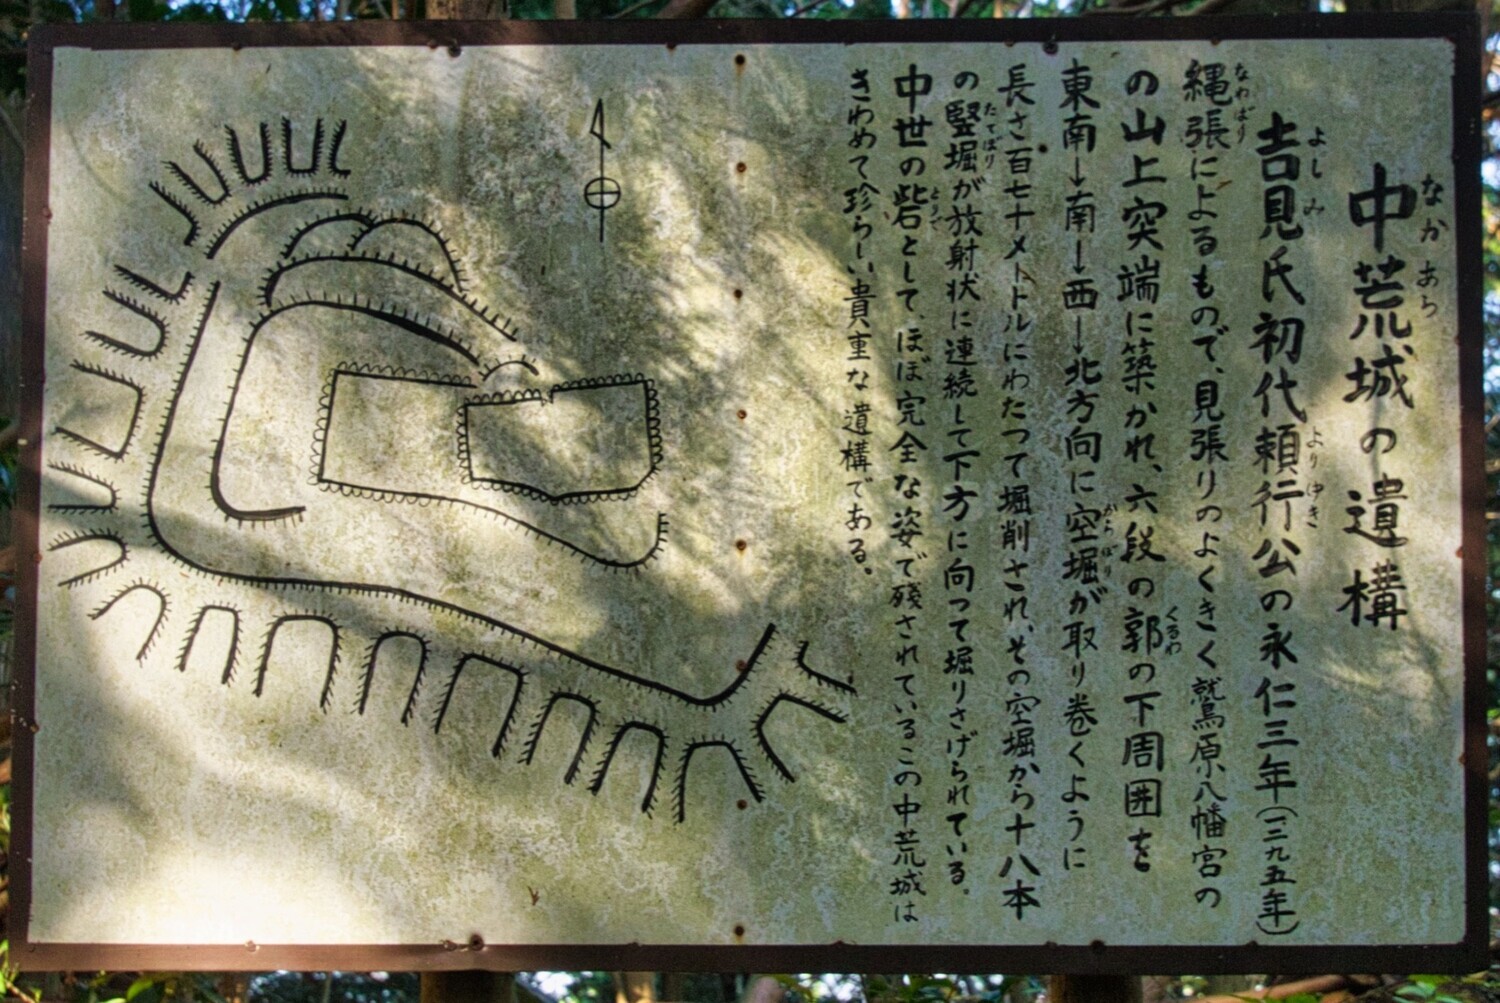 中荒城の遺構
吉見氏初代頼行公の永仁三年(一二九五年)
縄張によるもので、見張りのよくきく鷲原八幡宮の
の山上突端に築かれ、六段の郭の下周囲を
東南→南→西→北方向に空堀が取り巻くように
長さ百七十メートルにわたって堀削され、その空堀から十八本
の竪堀が放射状に連続して下方に向って堀りさげられている。
中世の砦として、ほぼ完全な姿で残されているこの中荒城は
きわめて珍らしい貴重な遺構である。